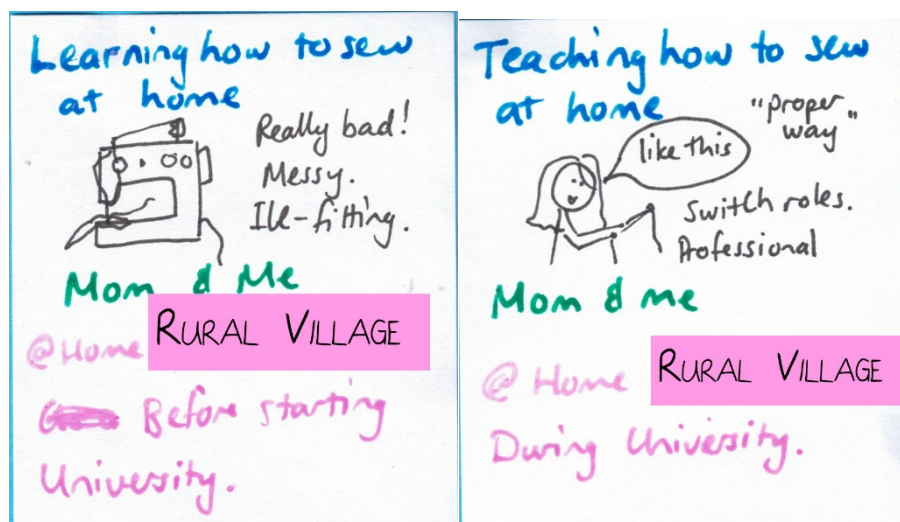 Learning how to sew
at home
Really bad!
Messy.
Ill-fitting.
Mom & Me
@Home RURAL VILLAGE
Before starting
University.
Teaching how to sew
at home
"proper
way"
like this
Switch roles.
Professional
Mom & me
@ Home RURAL VILLAGE
During University.